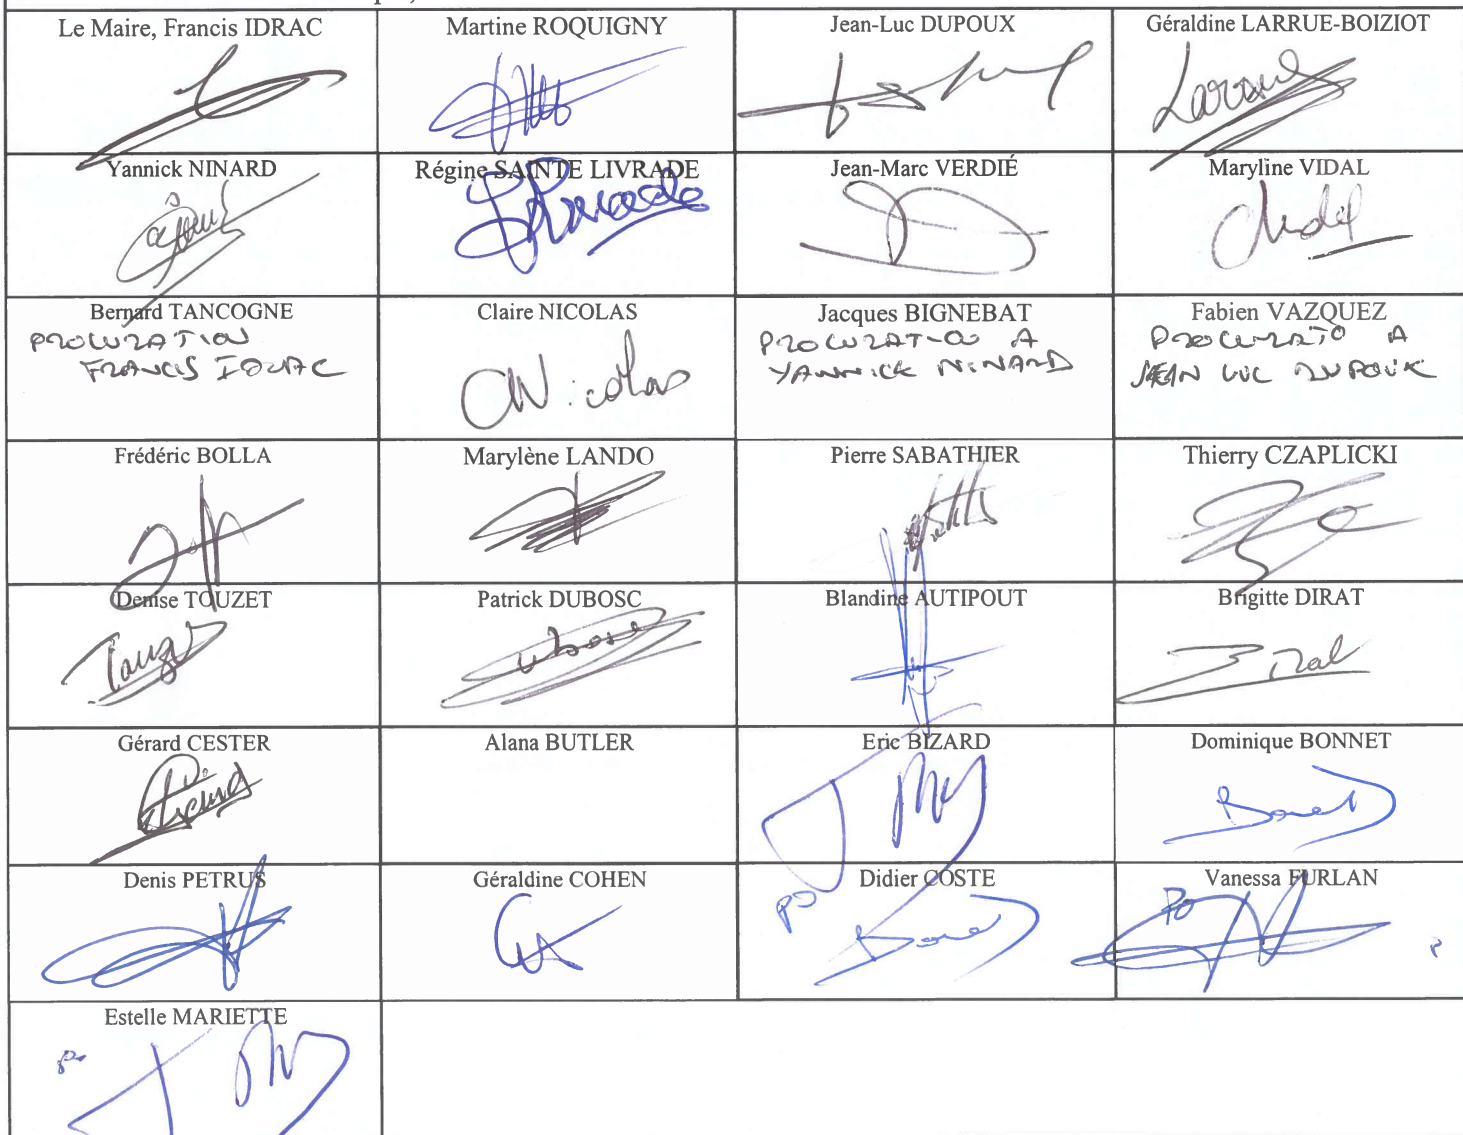 Le Maire, Francis IDRAC
Martine ROQUIGNY
Jean-Luc DUPOUX
Géraldine LARRUE-BOIZIOT
Yannick NINARD
Régine SAINTE LIVRADE
Jean-Marc VERDIÉ
Maryline VIDAL
Bernard TANCOGNE
PROCURATION
FRANCIS IDRAC
Claire NICOLAS
CNicolas
Jacques BIGNEBAT
PROCURATION A
YANNICK NINARD
Fabien VAZQUEZ
PROCURATIO A
JEAN LUC DUPOUX
Frédéric BOLLA
Marylène LANDO
Pierre SABATHIER
Thierry CZAPLICKI
Denise TOUZET
Patrick DUBOSC
Blandine AUTIPOUT
Brigitte DIRAT
Gérard CESTER
Alana BUTLER
Eric BIZARD
Dominique BONNET
Denis PETRUS
Géraldine COHEN
Didier COSTE
po
Vanessa FURLAN
Po
Estelle MARIETTE
po